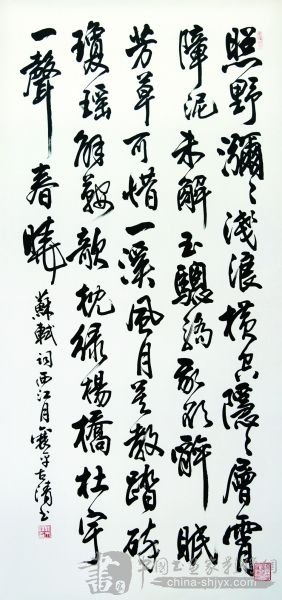 照野瀰〻淺浪橫空隱〻層霄
障泥未解玉驄驕我欲醉眠
芳草可惜一溪風月莫教踏碎
瓊瑤解鞍欹枕綠楊橋杜宇
一聲春曉 蘇軾詞西江月 襄平
書
china-shjyx.com